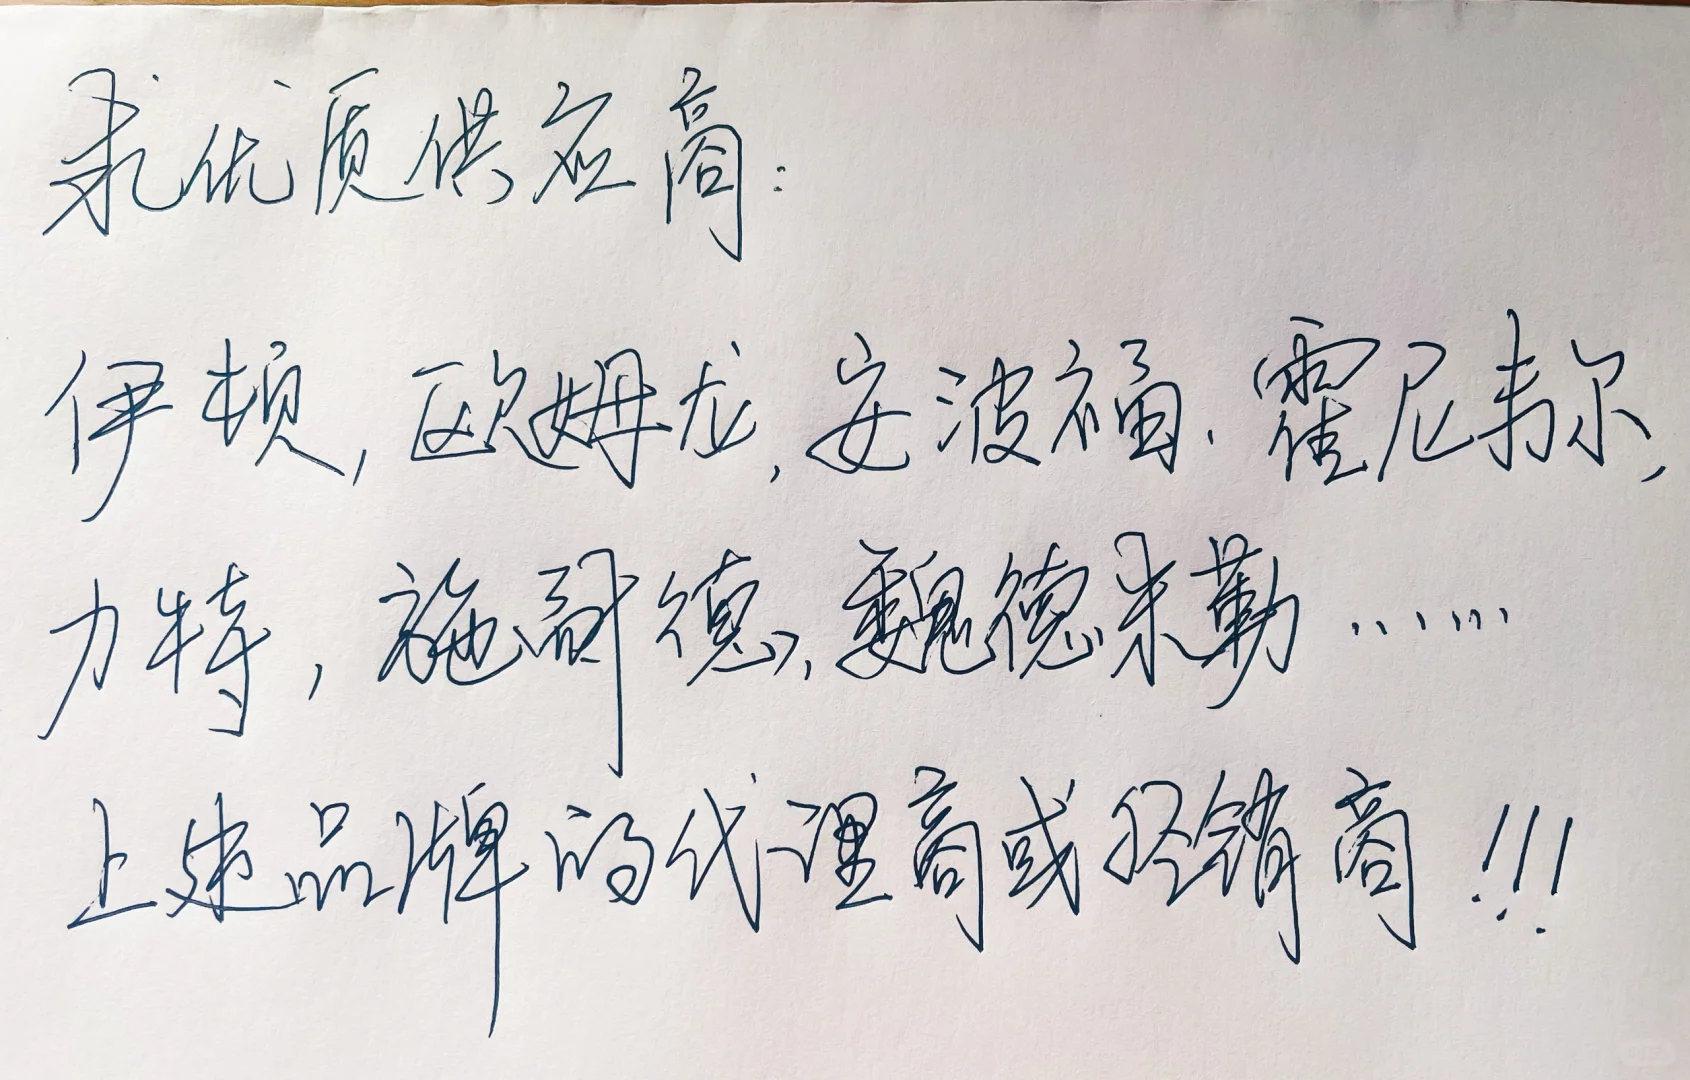 求优质供应商:
伊顿,欧姆龙,安波福.霍尼韦尔,
力特,施耐德,魏德米勒……
上述品牌的代理商或经销商!!!